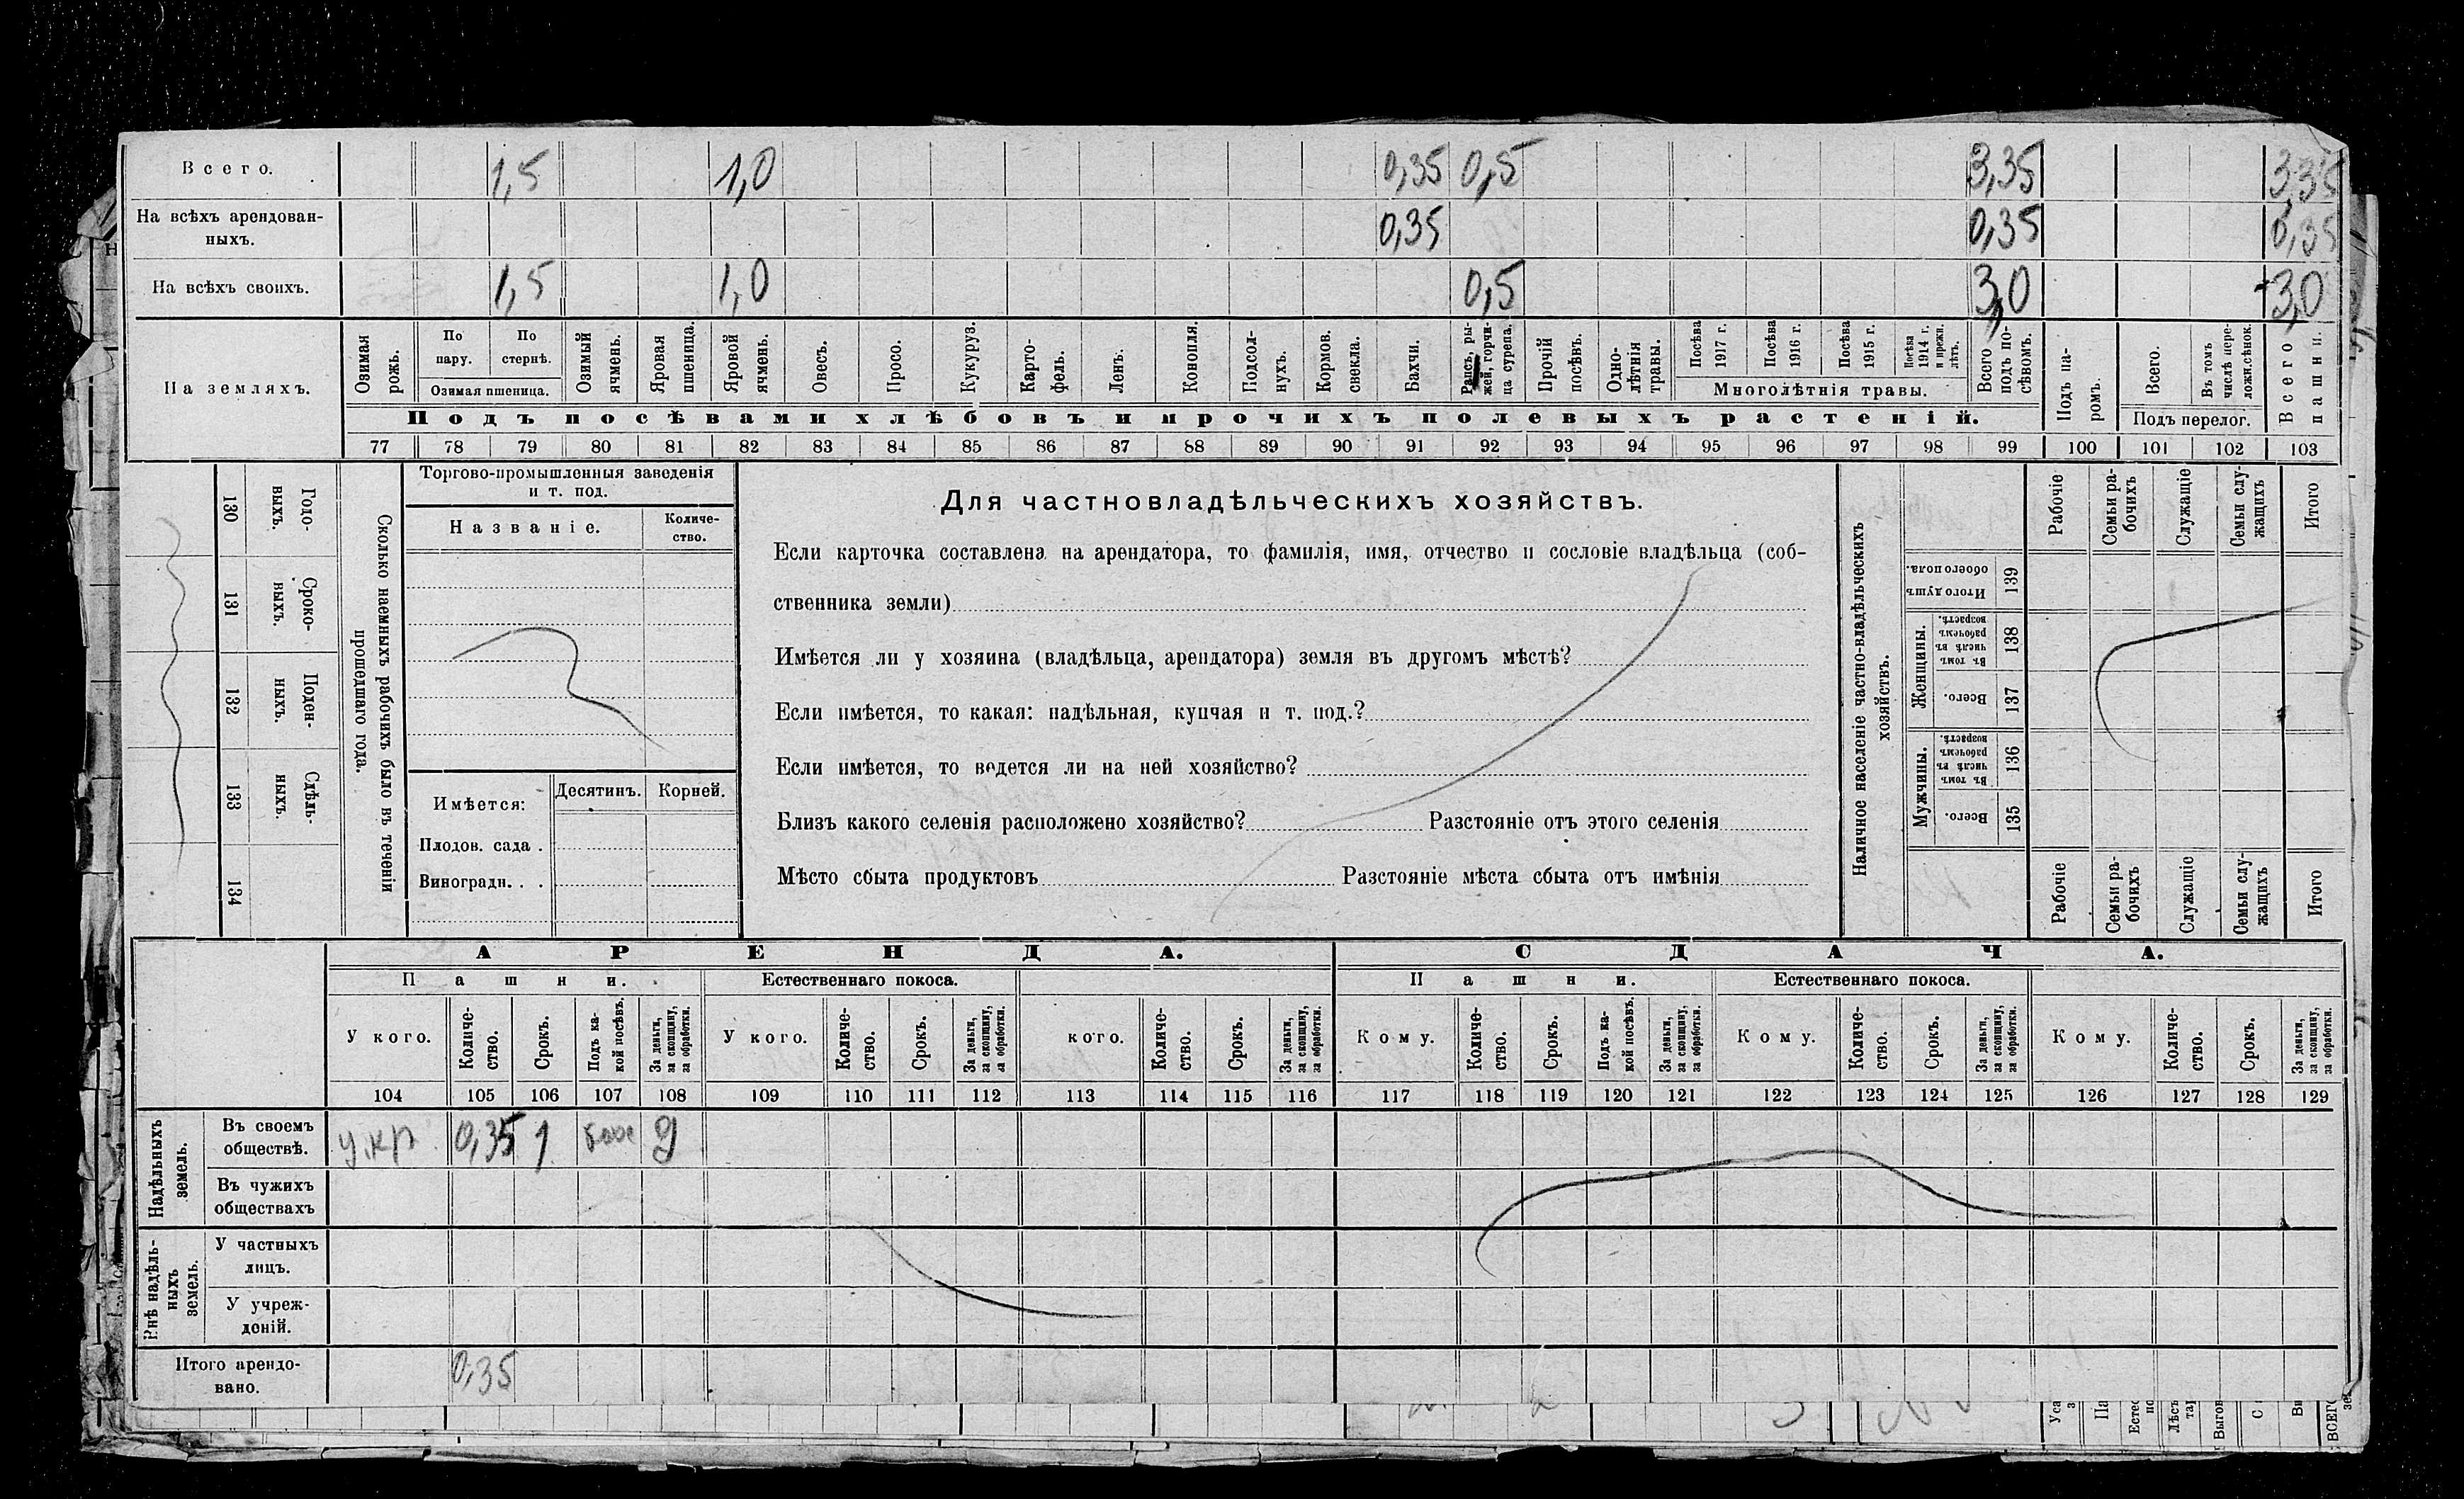 Всего. 1,5 1,0 0,35 0,5 3,35 3,35
На всѣхъ арендован-
ныхъ. 0,35 0,35 0,35
На всѣхъ своихъ. 1,5 1,0 0,5 3,0 3,0
На земляхъ.
Озимая рожь.
По пару.
По стернѣ.
Озимая пшеница.
Озимый ячмень.
Яровая пшеница.
Яровой ячмень.
Овесъ.
Просо.
Кукуруз.
Карто-
фель.
Ленъ.
Конопля.
Подсол-
нухъ.
Кормов. свекла.
Бахчи.
Рапсъ, ры-
жей, горчи-
ца сурепа.
Прочій посѣвъ.
Одно-
лѣтнія травы.
Посѣва 1917 г.
Посѣва 1916 г.
Посѣва 1915 г.
Посѣва 1914 г. и прежн. лѣтъ.
Многолѣтнія травы.
Всего подъ по-
сѣвомъ.
Подъ па-
ромъ.
Всего.
Въ томъ числѣ пере-
ложн. сѣнок.
Подъ перелог.
Всего пашни.
Подъ посѣвами хлѣбовъ и прочихъ полевыхъ растеній.
77 78 79 80 81 82 83 84 85 86 87 88 89 90 91 92 93 94 95 96 97 98 99 100 101 102 103
130 Годо-
выхъ.
131 Сроко-
ныхъ.
132 Поден-
ныхъ.
133 Сдѣль-
ныхъ.
134
Сколько наемныхъ рабочихъ было въ теченіи
прошедшаго года.
Торгово-промышленныя заведенія
и т. под.
Названіе.
Количе-
ство.
Имѣется: Десятинъ. Корней.
Плодов. сада .
Виноградн. . .
Для частновладѣльческихъ хозяйствъ.
Если карточка составлена на арендатора, то фамилія, имя, отчество и сословіе владѣльца (соб-
ственника земли)
Имѣется ли у хозяина (владѣльца, арендатора) земля въ другомъ мѣстѣ?
Если имѣется, то какая: надѣльная, купчая и т. под.?
Если имѣется, то ведется ли на ней хозяйство?
Близъ какого селенія расположено хозяйство? Разстояніе отъ этого селенія
Мѣсто сбыта продуктовъ Разстояніе мѣста сбыта отъ имѣнія
Наличное населеніе частно-владѣльческихъ
хозяйствъ.
Рабочіе
Семьи ра-
бочихъ
Служащіе
Семьи слу-
жащихъ
Итого
Итого душъ обоего пола. 139
Женщины.
Въ томъ числѣ въ рабочемъ возрастѣ. 138
Всего. 137
Мужчины.
Въ томъ числѣ въ рабочемъ возрастѣ. 136
Всего. 135
Рабочіе
Семьи ра-
бочихъ
Служащіе
Семьи слу-
жащихъ
Итого
АРЕНДА. СДАЧА.
Пашни. Естественнаго покоса. Пашни. Естественнаго покоса.
У кого.
Количе-
ство.
Срокъ.
Подъ ка-
кой посѣвъ.
За деньги, за скопщину, за обработки.
У кого.
Количе-
ство.
Срокъ.
За деньги, за скопщину, за обработки.
кого.
Количе-
ство.
Срокъ.
За деньги, за скопщину, за обработки.
Кому.
Количе-
ство.
Срокъ.
Подъ ка-
кой посѣвъ.
За деньги, за скопщину, за обработки.
Кому.
Количе-
ство.
Срокъ.
За деньги, за скопщину, за обработки.
Кому.
Количе-
ство.
Срокъ.
За деньги, за скопщину, за обработки.
104 105 106 107 108 109 110 111 112 113 114 115 116 117 118 119 120 121 122 123 124 125 126 127 128 129
Надѣльныхъ земель.
Въ своемъ
обществѣ. у кр. 0,35 1 д
Въ чужихъ
обществахъ
Внѣ надѣль-
ныхъ земель.
У частныхъ
лицъ.
У учреж-
деній.
Итого арендо-
вано. 0,35